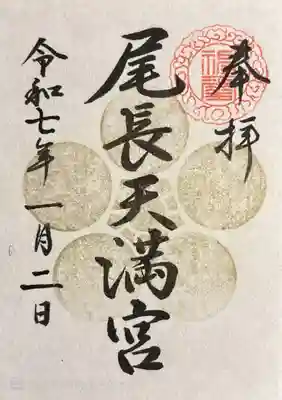 奉拝
尾長天満宮
令和七年一月二日